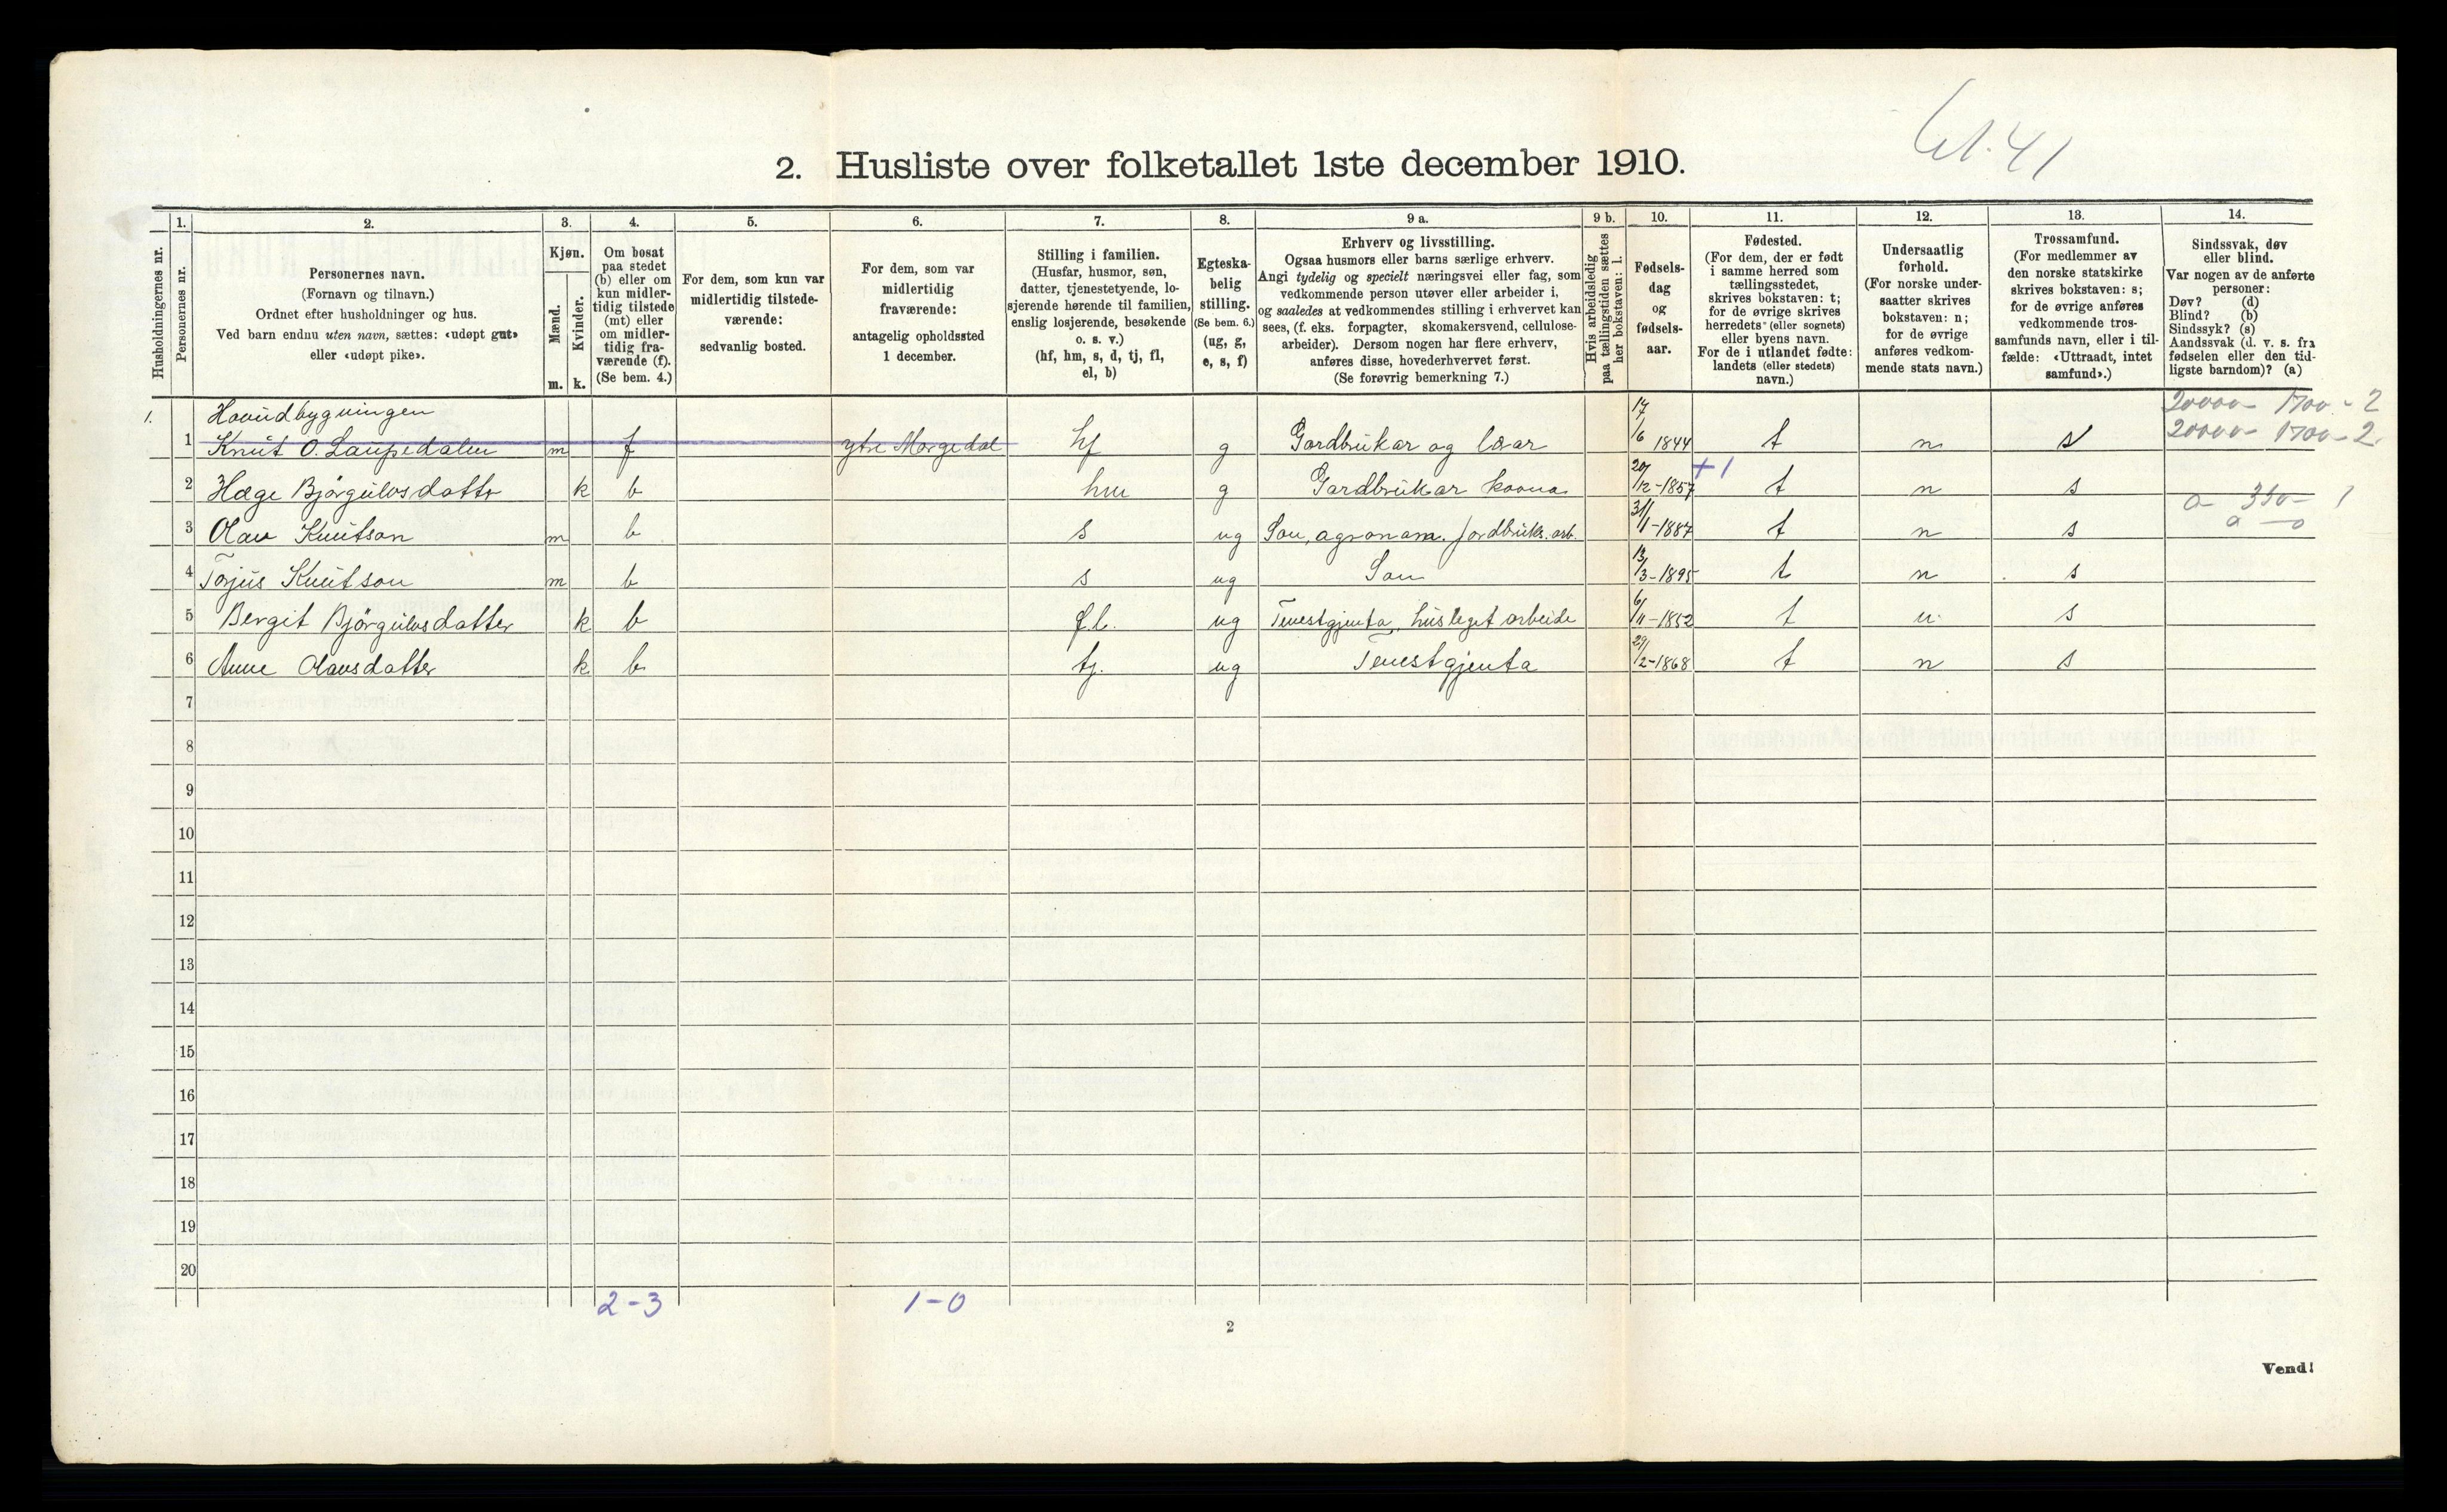 61.41
2. Husliste over folketallet 1ste december 1910.
Husholdningernes nr.
1. Personernes nr.
2. Personernes navn.
(Fornavn og tilnavn.)
Ordnet efter husholdninger og hus.
Ved barn endnu uten navn, sættes: «udøpt gut»
eller «udøpt pike».
3. Kjøn.
Mænd. m.
Kvinder. k.
4. Om bosat
paa stedet
(b) eller om
kun midler-
tidig tilstede
(mt) eller
om midler-
tidig fra-
værende (f).
(Se bem. 4.)
5. For dem, som kun var
midlertidig tilstede-
værende:
sedvanlig bosted.
6. For dem, som var
midlertidig
fraværende:
antagelig opholdssted
1 december.
7. Stilling i familien.
(Husfar, husmor, søn,
datter, tjenestetyende, lo-
sjerende hørende til familien,
enslig losjerende, besøkende
o. s. v.)
(hf, hm, s, d, tj, fl,
el, b)
8. Egteska-
belig
stilling.
(Se bem. 6.)
(ug, g,
e, s, f)
9 a. Erhverv og livsstilling.
Ogsaa husmors eller barns særlige erhverv.
Angi tydelig og specielt næringsvei eller fag, som
vedkommende person utøver eller arbeider i,
og saaledes at vedkommendes stilling i erhvervet kan
sees, (f. eks. forpagter, skomakersvend, cellulose-
arbeider). Dersom nogen har flere erhverv,
anføres disse, hovederhvervet først.
(Se forøvrig bemerkning 7.)
9 b. Hvis arbeidsledig
paa tællingstiden sættes
her bokstaven: l.
10. Fødsels-
dag
og
fødsels-
aar.
11. Fødested.
(For dem, der er født
i samme herred som
tællingsstedet,
skrives bokstaven: t;
for de øvrige skrives
herredets (eller sognets)
eller byens navn.
For de i utlandet fødte:
landets (eller stedets)
navn.)
12. Undersaatlig
forhold.
(For norske under-
saatter skrives
bokstaven: n;
for de øvrige
anføres vedkom-
mende stats navn.)
13. Trossamfund.
(For medlemmer av
den norske statskirke
skrives bokstaven: s;
for de øvrige anføres
vedkommende tros-
samfunds navn, eller i til-
fælde: «Uttraadt, intet
samfund».)
14. Sindssvak, døv
eller blind.
Var nogen av de anførte
personer:
Døv? (d)
Blind? (b)
Sindssyk? (s)
Aandssvak (d. v. s. fra
fødselen eller den tid-
ligste barndom)? (a)
1. Hovudbygningen 20000 - 1700 - 2
1 Knut O. Laupedalen m f ytre Morgedal hf g Gardbrukar og lærar 17/6 1844 t n s 20000 - 1700 - 2.
2 Hæge Bjørgulvsdatter k b hm g Gardbrukar koona 20/12-1857 +1 t n s
a 350 - 1
3 Olav Knutson m b s ug Son, agronom. Jordbruks. arb. 31/1-1887 t n s a - 0
4 Torjus Knutson m b s ug Son 13/3-1895 t n s
5 Bergit Bjørgulvsdatter k b f.l. ug Tenestgjenta, husleget arbeide 6/11-1852 t n s
6 Anne Olavsdatter k b tj. ug Tenestgjenta 29/2-1868 t n s
7
8
9
10
11
12
13
14
15
16
17
18
19
20
2-3 1-0
2
Vend!